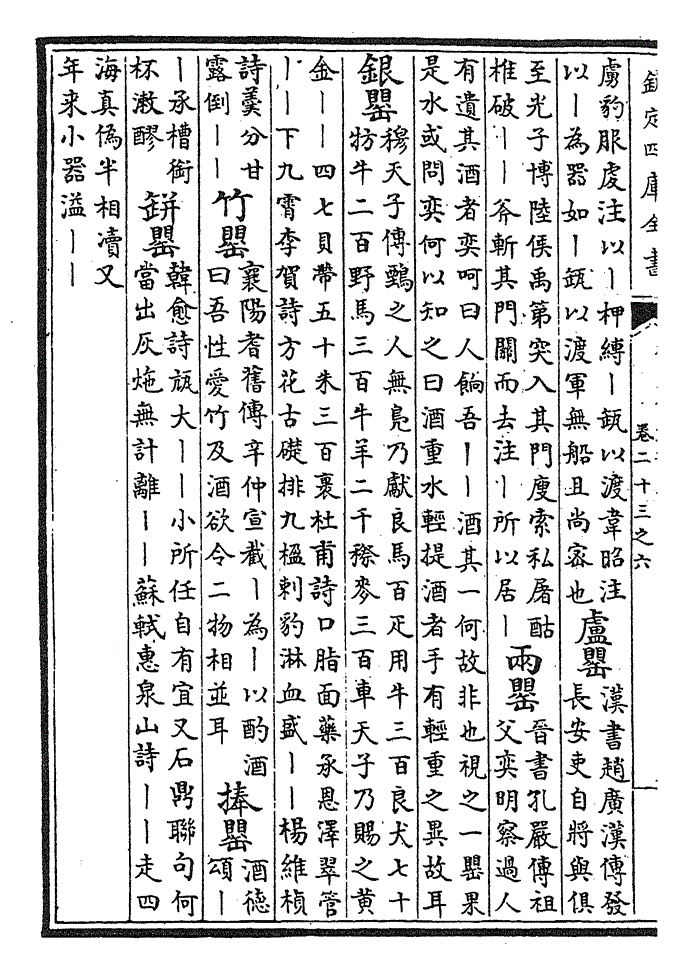 欽定四庫全書
卷二十三之六
虜豹服虔注以｜柙縛｜缻以渡韋昭注
以｜為器如｜缻以渡軍無船且尚宻也
盧罌
漢書趙廣漢傳發
長安吏自將與俱
至光子博陸侯禹第突入其門廋索私屠酤
椎破｜｜斧斬其門關而去注｜所以居｜
兩罌
晉書孔嚴傳祖
父奕明察過人
有遺其酒者奕呵曰人餉吾｜｜酒其一何故非也視之一罌果
是水或問奕何以知之曰酒重水輕提酒者手有輕重之異故耳
銀罌
穆天子傳鸀之人無鳧乃獻良馬百疋用牛三百良犬七十
牥牛二百野馬三百牛羊二千穄麥三百車天子乃賜之黃
金｜｜四七貝帶五十朱三百裹杜甫詩口脂面藥承恩澤翠管
｜｜下九霄李賀詩方花古礎排九楹刺豹淋血盛｜｜楊維楨
詩羹分甘
露倒｜｜
竹罌
襄陽耆舊傳辛仲宣截｜為｜以酌酒
曰吾性愛竹及酒欲令二物相並耳
捧罌
酒德
頌｜
｜承槽銜
杯漱醪
缾罌
韓愈詩瓬大｜｜小所任自有宜又石鼎聯句何
當出灰炧無計離｜｜蘇軾惠泉山詩｜｜走四
海真偽半相瀆又
年来小器溢｜｜